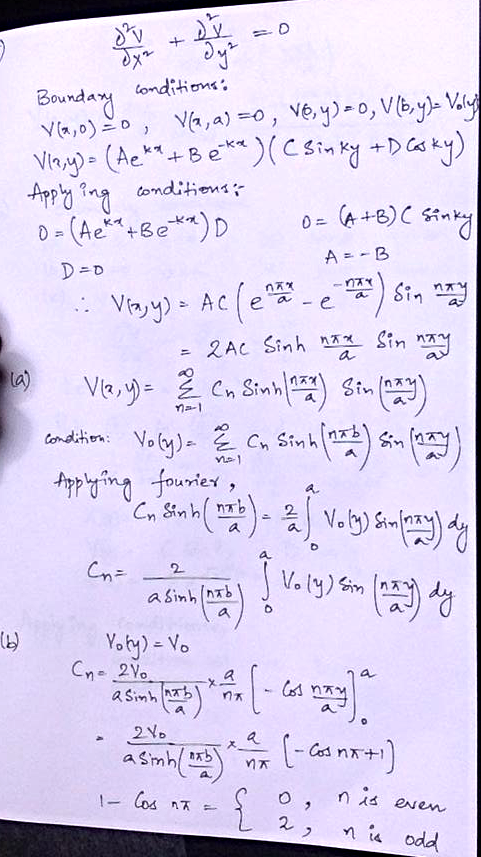 ∂²V/∂x² + ∂²V/∂y² = 0
Boundary conditions:
V(x,0)=0, V(x,a)=0, V(0,y)=0, V(b,y)=V₀(y)
V(x,y) = (Ae^{kx} + Be^{-kx})(C Sin ky + D Cos ky)
Applying conditions:-
0 = (Ae^{kx} + Be^{-kx}) D 0 = (A+B) C Sin ky
D=0 A = -B
∴ V(x,y) = AC (e^{nπx/a} - e^{-nπx/a}) Sin nπy/a
= 2AC Sinh nπx/a Sin nπy/a
(a) V(x,y) = Σ_{n=1}^{∞} Cn Sinh(nπx/a) Sin(nπy/a)
Condition: V₀(y) = Σ_{n=1}^{∞} Cn Sinh(nπb/a) Sin(nπy/a)
Applying fourier,
Cn Sinh(nπb/a) = 2/a ∫₀^a V₀(y) Sin(nπy/a) dy
Cn = 2/(a sinh(nπb/a)) ∫₀^a V₀(y) Sin(nπy/a) dy
(b) V₀(y) = V₀
Cn = 2V₀/(a Sinh(nπb/a)) × a/nπ [- Cos nπy/a]₀^a
= 2V₀/(a Sinh(nπb/a)) × a/nπ [- Cos nπ + 1]
1 - Cos nπ = { 0, n is even
2, n is odd